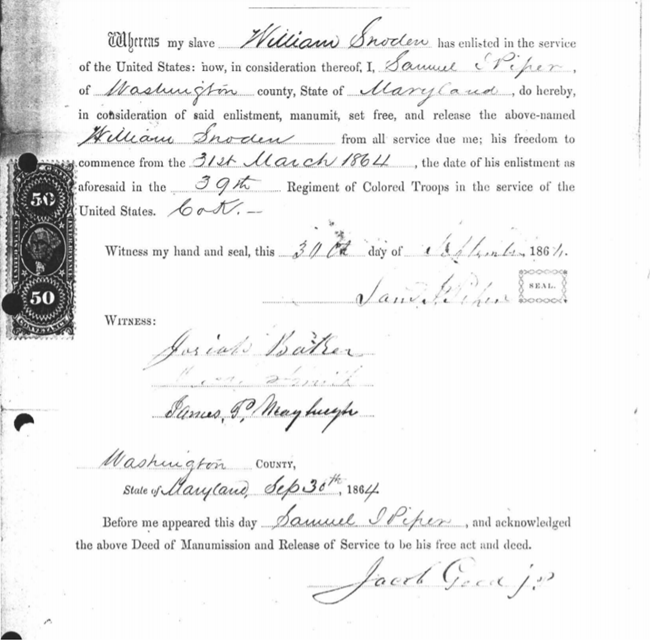 Whereas my slave William Snoden has enlisted in the service
of the United States: now, in consideration thereof, I, Samuel I Piper,
of Washington county, State of Maryland, do hereby,
in consideration of said enlistment, manumit, set free, and release the above-named
William Snoden from all service due me; his freedom to
commence from the 31st March 1864, the date of his enlistment as
aforesaid in the 39th Regiment of Colored Troops in the service of the
United States. Co K. —
50
Witness my hand and seal, this 30th day of September 1864.
Saml I Piper SEAL.
50
WITNESS:
Josiah Baker
Smith
James, P, Mayhugh
Washington COUNTY,
State of Maryland, Sep 30th, 1864.
Before me appeared this day Samuel I Piper, and acknowledged
the above Deed of Manumission and Release of Service to be his free act and deed.
Jacob Good J.P.